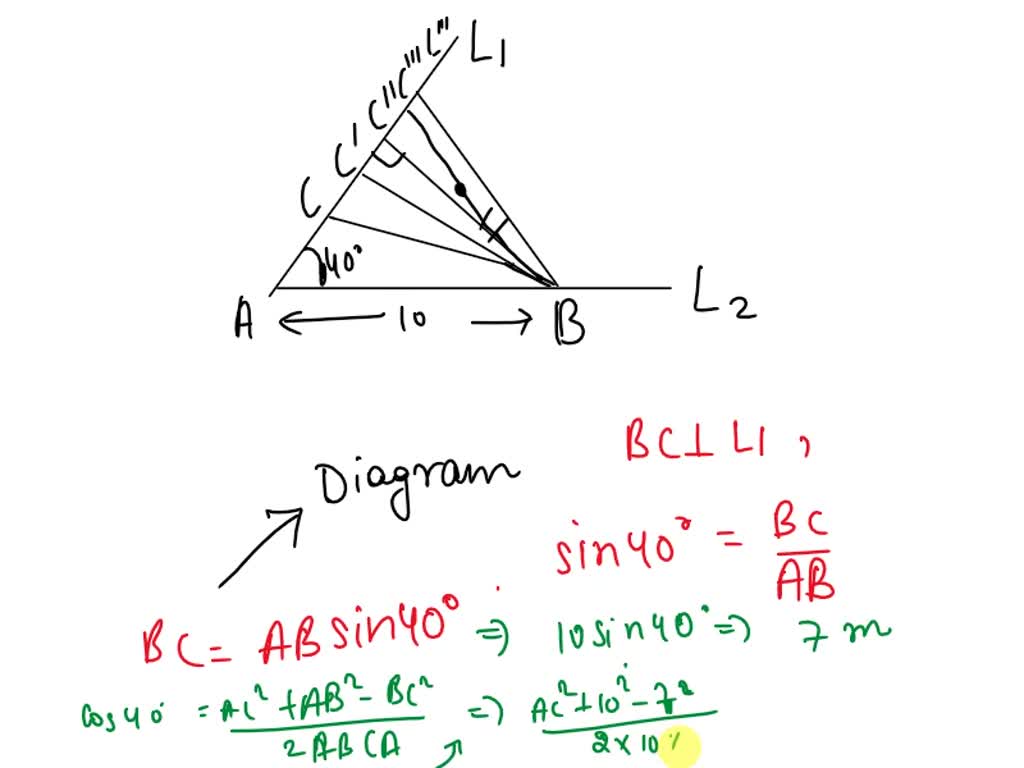 C C' C'' C''' C'''' L1
40°
A 10 B L2
BC⊥L1,
Diagram
sin40° = BC/AB
BC = ABsin40° ⇒ 10sin40° ⇒ 7m
cos40° = AC²+AB²-BC²/2ABCA ⇒ AC²+10²-7²/2×10